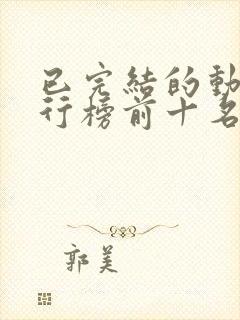 已完結的動
行榜前十名
郭美